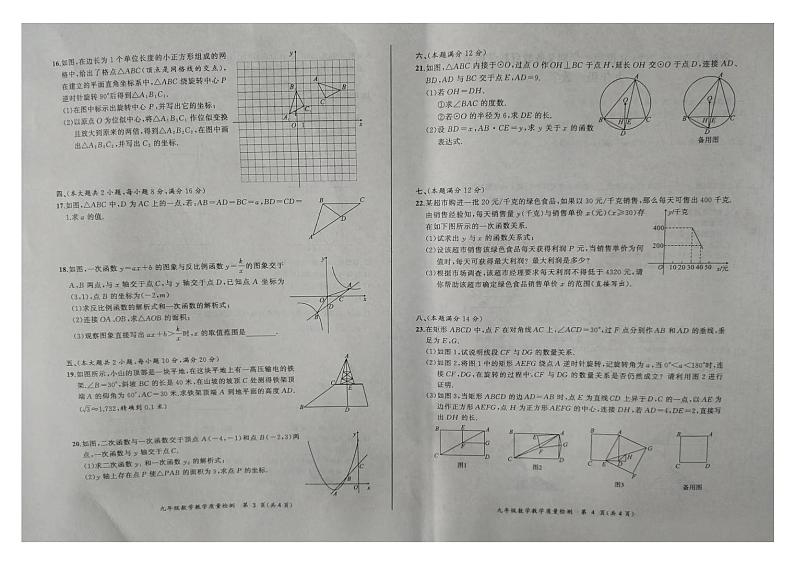 16.如图,在边长为1个单位长度的小正方形组成的网
格中,给出了格点△ABC(顶点是网格线的交点),
在建立的平面直角坐标系中,△ABC绕旋转中心P
逆时针旋转90°后得到△A₁B₁C₁.
(1)在图中标示出旋转中心P,并写出它的坐标;
(2)以原点O为位似中心,将△A₁B₁C₁作位似变换
且放大到原来的两倍,得到△A₂B₂C₂,在图中画
出△A₂B₂C₂,并写出C₂的坐标.
四、(本大题共2小题,每小题8分,满分16分)
17.如图,△ABC中,D为AC上的一点,若:AB=AD=BC=a,BD=CD=
1.求a的值.
18.如图,一次函数y=ax+b的图象与反比例函数y=k/x的图象交于
A,B两点,与x轴交于点C,与y轴交于点D,已知点A坐标为
(3,1),点B的坐标为(-2,m)
(1)求反比例函数的解析式和一次函数的解析式;
(2)连接OA、OB,求△AOB的面积;
(3)观察图象直接写出ax+b>k/x时,x的取值范围是______.
五、(本大题共2小题,每小题10分,满分20分)
19.如图所示,小山的顶部是一块平地,在这块平地上有一高压输电的铁
架,∠B=30°,斜坡BC的长是40米,在山坡的坡顶C处测得铁架顶
端A的仰角为60°,AC=30米,求铁架顶端A到地平面的高度AD.
(√3≈1.732,精确到0.1米)
20.如图,二次函数与一次函数交于顶点A(-4,-1)和点B(-2,3)两
点,一次函数与y轴交于点C.
(1)求二次函数y₁和一次函数y₂的解析式;
(2)y轴上存在点P使△PAB的面积为9,求点P的坐标.
九年级数学教学质量检测 第3页(共4页)
六、(本题满分12分)
21.如图,△ABC内接于⊙O,过点O作OH⊥BC于点H,延长OH交⊙O于点D,连接AD、
BD,AD与BC交于点E,AD=9.
(1)若OH=DH.
①求∠BAC的度数.
②若⊙O的半径为6,求DE的长.
(2)设BD=x,AB·CE=y,求y关于x的函数
表达式.
备用图
七、(本题满分12分)
22.某超市购进一批20元/千克的绿色食品,如果以30元/千克销售,那么每天可售出400千克.
由销售经验知,每天销售量y(千克)与销售单价x(元)(x≥30)存
在如下图所示的一次函数关系.
(1)试求出y与x的函数关系式;
(2)设该超市销售该绿色食品每天获得利润P元,当销售单价为何
值时,每天可获得最大利润?最大利润是多少?
(3)根据市场调查,该超市经理要求每天利润不得低于4320元,请
你帮助该超市确定绿色食品销售单价x的范围(直接写出).
y/千克
400
200
O 10 20 30 40 50 x/元
八、(本题满分14分)
23.在矩形ABCD中,点F在对角线AC上,∠ACD=30°,过F点分别作AB和AD的垂线,垂
足为E,G.
(1)如图1,试说明线段CF与DG的数量关系.
(2)如图2,将图1中的矩形AEFG绕点A逆时针旋转,记旋转角为a,当0°<a<180°时,连
接CF,DG,在旋转的过程中,CF与DG的数量关系是否仍然成立?请利用图2进行
证明.
(3)如图3,当矩形ABCD的边AD=AB时,点E为直线CD上异于D、C的一点,以AE为
边作正方形AEFG,点H为正方形AEFG的中心,连接DH,若AD=4,DE=2,直接写
出DH的长.
图1
图2
图3
备用图
九年级数学教学质量检测 第4页(共4页)